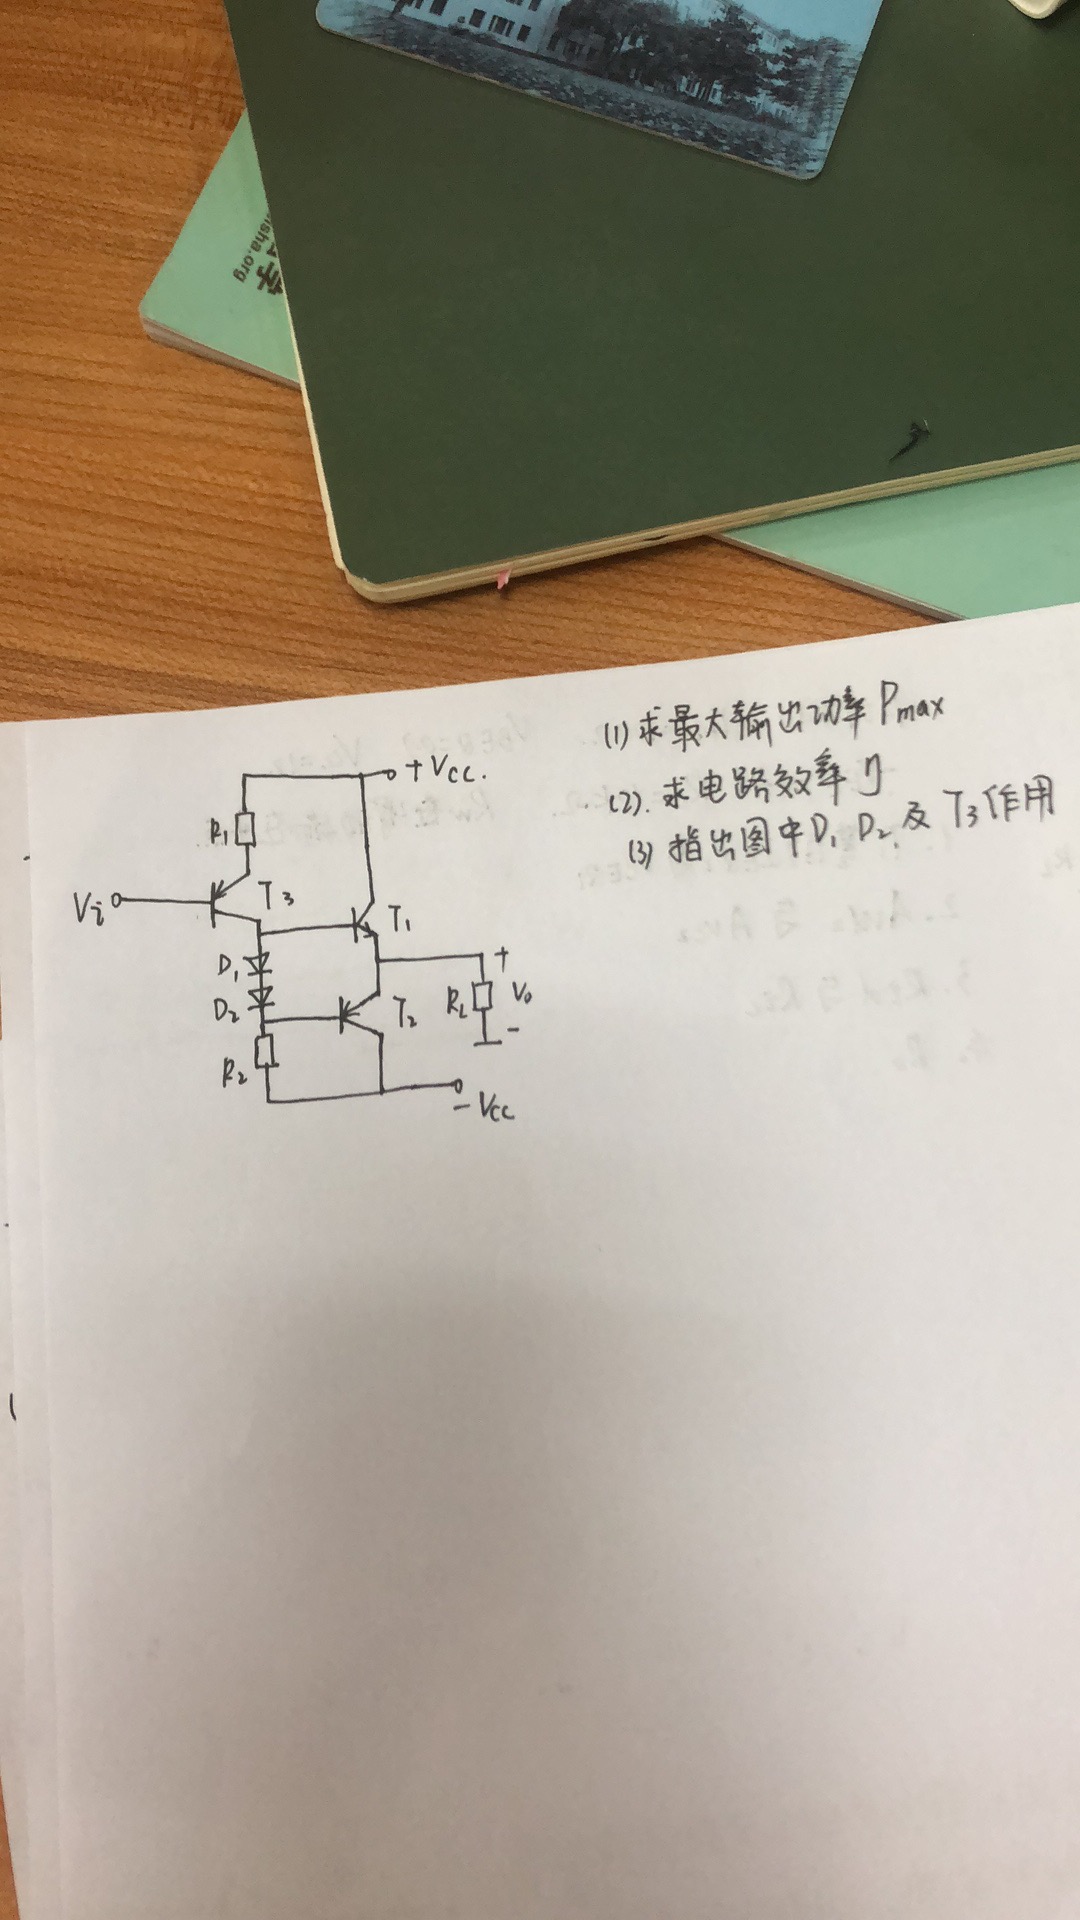 isha.org
学
(1) 求最大输出功率 Pmax
(2). 求电路效率 η
(3) 指出图中 D₁ D₂ 及 T₃ 作用
+Vcc.
R₁
Vi
T₃
T₁
D₁
D₂
+
R_L
V₀
-
T₂
R₂
-Vcc